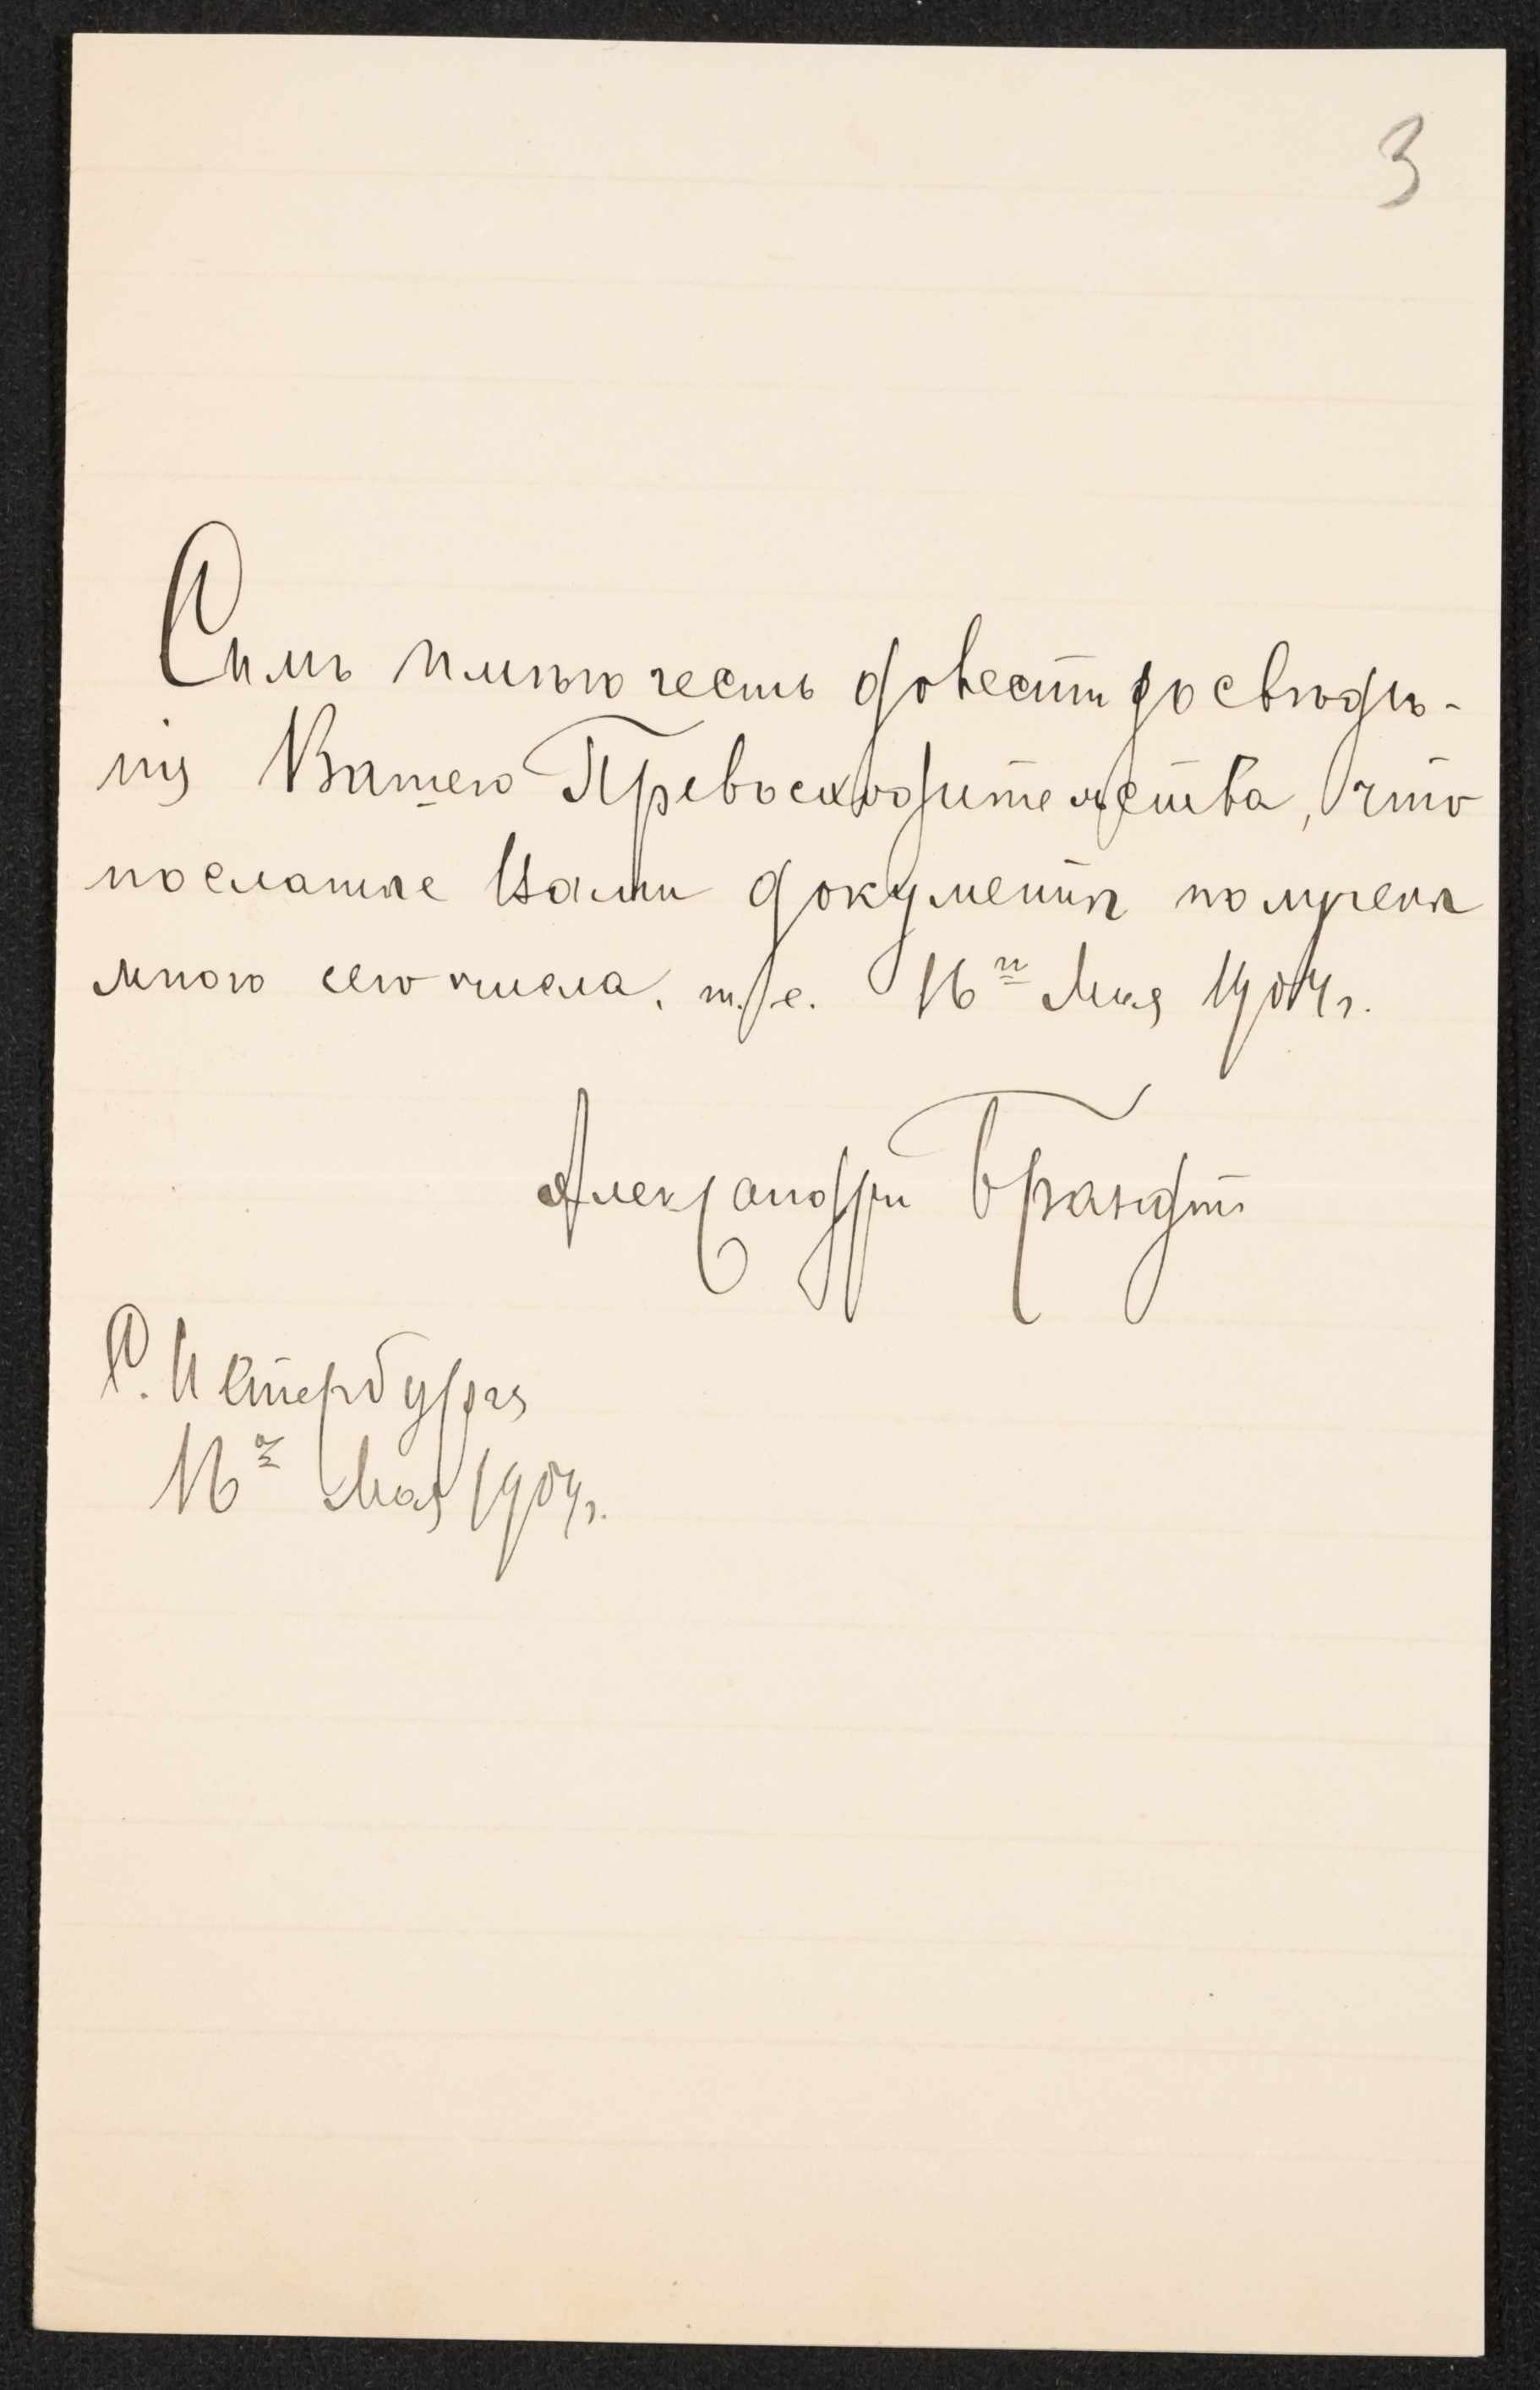 3
Симъ имѣю честь довести до свѣдѣ-
нія Вашего Превосходительства, что
посланные Вами документы получены
мною сего числа, т. е. 16го Мая 1904 г.
Александръ Брандтъ
С. Петербургъ
16го Мая 1904 г.